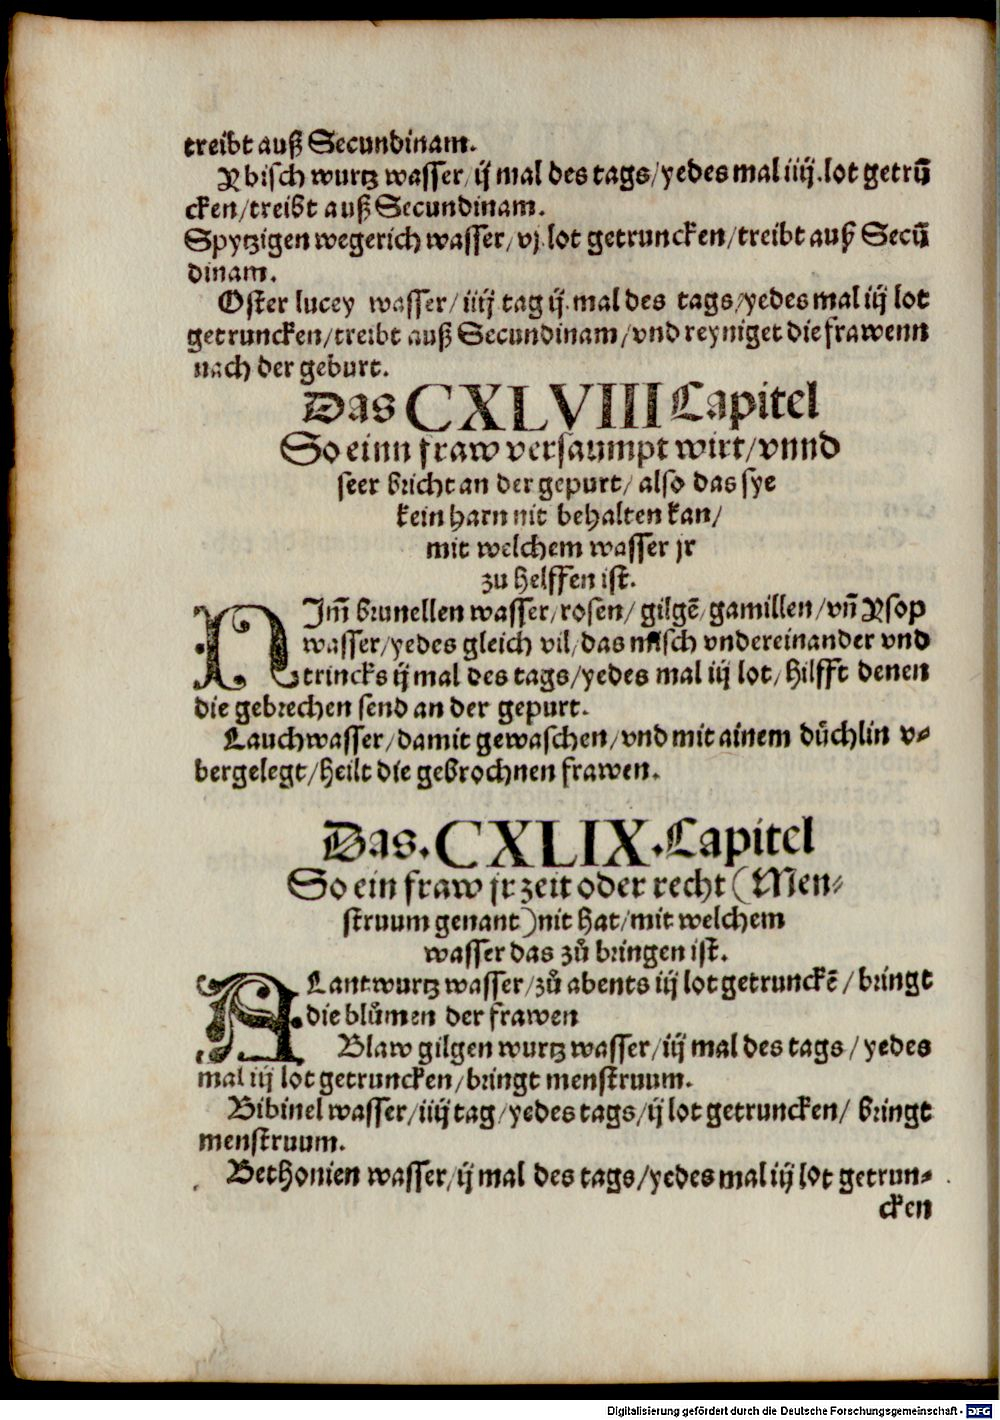 treibt auß Secundinam.
Ybisch wurtz wasser/ ij mal des tags/ yedes mal iiij. lot getrū
cken/ treibt auß Secundinam.
Spytzigen wegerich wasser/ vj. lot getruncken/ treibt auß Secū
dinam.
Oster lucey wasser/ iiij tag ij. mal des tags/ yedes mal iij lot
getruncken/ treibt auß Secundinam/ vnd reyniget die frawenn
nach der geburt.
Das CXLVIII Capitel
So einn fraw versaumpt wirt/ vnnd
seer bricht an der gepurt/ also das sye
kein harn nit behalten kan/
mit welchem wasser jr
zu helffen ist.
NIm̃ brunellen wasser/ rosen/ gilgē/ gamillen/ vn̄ Ysop
wasser/ yedes gleich vil/ das misch vndereinander vnd
trincks ij mal des tags/ yedes mal iij lot/ hilfft denen
die gebrechen send an der gepurt.
Lauchwasser/ damit gewaschen/ vnd mit ainem dūchlin v⸗
bergelegt/ heilt die gebrochnen frawen.
Das. CXLIX. Capitel
So ein fraw jr zeit oder recht (Men⸗
struum genant) nit hat/ mit welchem
wasser das zů bringen ist.
ALantwurtz wasser/ zů abents iij lot getrunckē/ bringt
die blůmen der frawen
Blaw gilgen wurtz wasser/ iij mal des tags/ yedes
mal iij lot getruncken/ bringt menstruum.
Bibinel wasser/ iiij tag/ yedes tags/ ij lot getruncken/ bringt
menstruum.
Bethonien wasser/ ij mal des tags/ yedes mal iij lot getrun⸗
cken
Digitalisierung gefördert durch die Deutsche Forschungsgemeinschaft - DFG